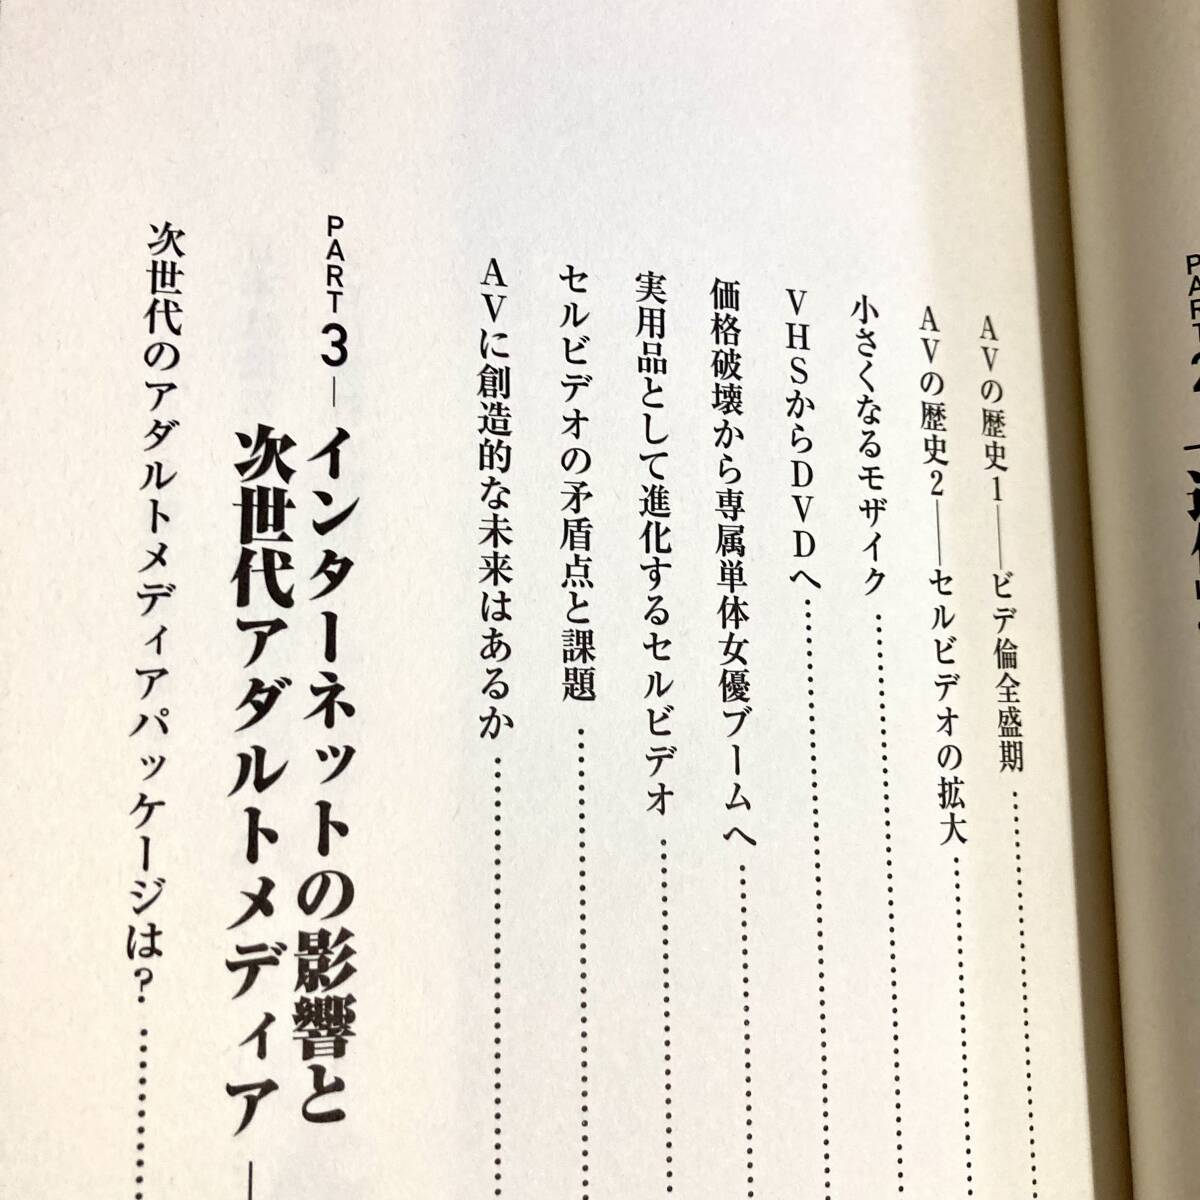 PART 2
AVの歴史1――ビデ倫全盛期
AVの歴史2――セルビデオの拡大
小さくなるモザイク
VHSからDVDへ
価格破壊から専属単体女優ブームへ
実用品として進化するセルビデオ
セルビデオの矛盾点と課題
AVに創造的な未来はあるか
PART 3―インターネットの影響と
次世代アダルトメディア―
次世代のアダルトメディアパッケージは?